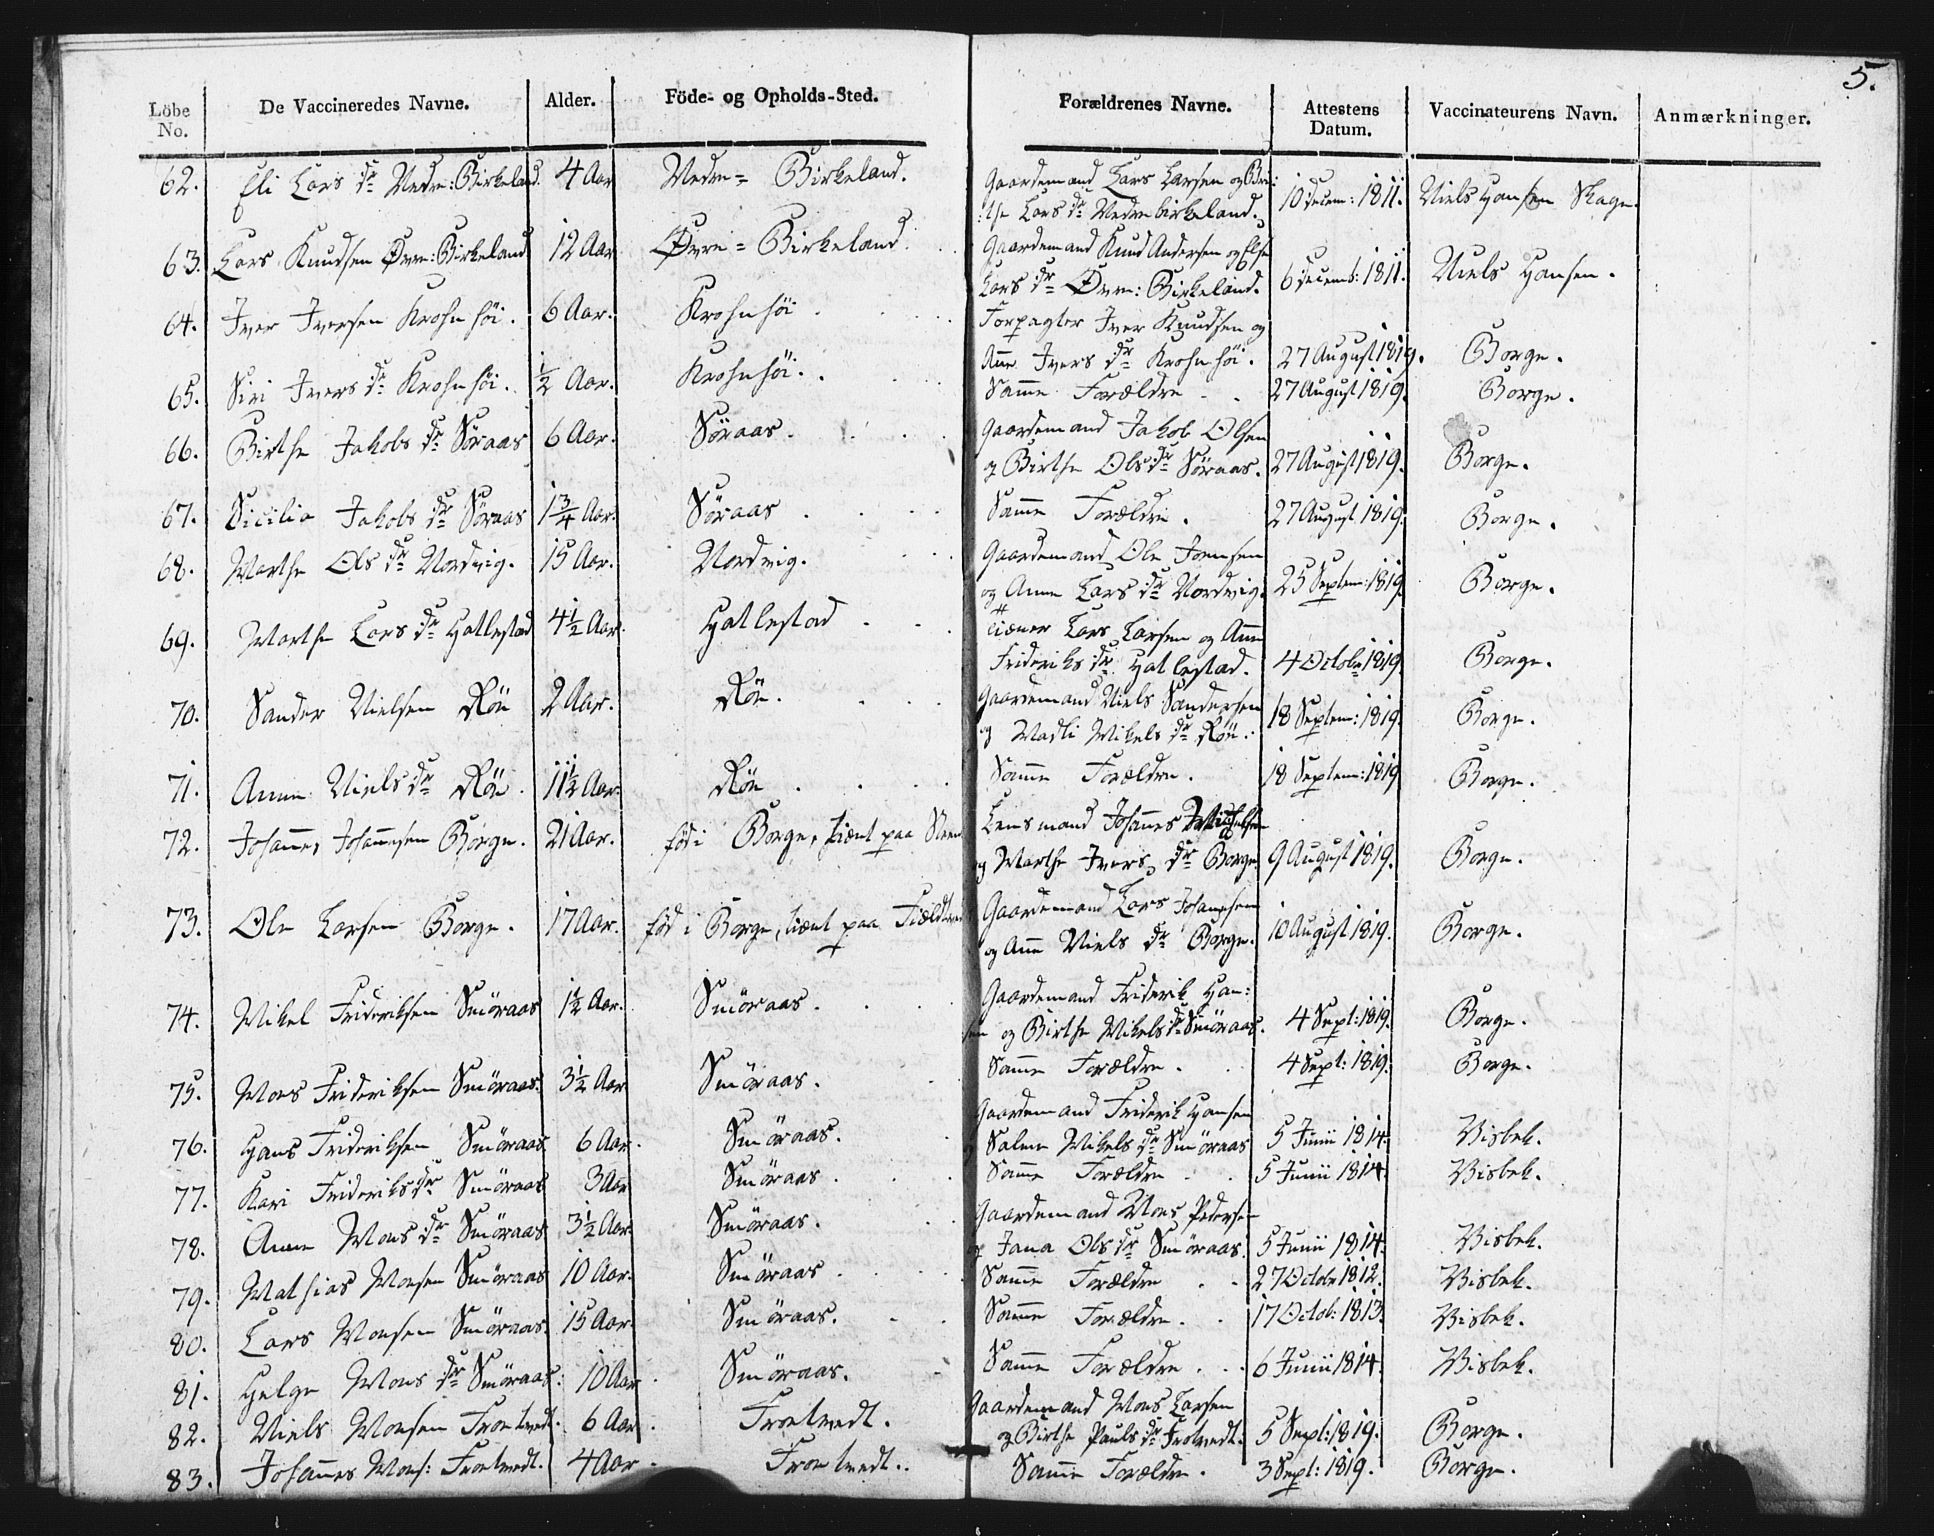 5.
Löbe No. De Vaccineredes Navne. Alder. Föde- og Opholds-Sted. Forældrenes Navne. Attestens Datum. Vaccinateurens Navn. Anmærkninger.
62. Eli Lars dr Nedre: Birkeland. 4 Aar Nedre = Birkeland. Gaardemand Lars Larsen og Bri:
the Lars dr Nedre birkeland. 10 Decem: 1811. Niels Hansen Skage.
63. Lars Knudsen Øvre: Birkeland 12 Aar Øvre = Birkeland. Gaardemand Knud Andersen og Else
Lars dr Øvre: Birkeland. 6 Decemb: 1811. Niels Hansen.
64. Iver Iversen Krohnhöi. 6 Aar. Krohnhöi. Forpagter Iver Knudsen og
Ane Ivers dr Krohnhöi. 27 August 1819. Borge.
65. Siri Ivers dr Krohnhöi. ½ Aar. Krohnhöi. Samme Forældre 27 August 1819. Borge.
66. Birthe Jakobs dr Söraas 6 Aar. Söraas. Gaardemand Jakob Olsen
og Birthe Ols dr Söraas. 27 August 1819. Borge.
67. Sicilia Jakobs dr Söraas 1¾ Aar. Söraas. Samme Forældre. 27 August 1819. Borge.
68. Marthe Ols dr Nordvig. 15 Aar. Nordvig. Gaardemand Ole Joensen
og Anne Lars dr Nordvig. 25 Septem: 1819. Borge.
69. Marthe Lars dr Hatlestad 4½ Aar. Hatlestad Lars Larsen og Ane
Frideriks dr Hatlestad. 4 Octobr 1819. Borge.
70. Sander Nielsen Röe 2 Aar. Röe. Gaardemand Niels Sandersen
og Madli Mikels dr Röe. 18 Septem: 1819. Borge.
71. Anne Niels dr Röe. 11½ Aar. Röe. Samme Forældre. 18 Septem: 1819 Borge.
72. Johannes Johannesen Borge. 21 Aar. föd i Borge, tient paa Steen Lensmand Johannes
og Marthe Ivers dr Borge. 9 August 1819. Borge.
73. Ole Larsen Borge. 17 Aar. föd i Borge, tient paa Gaardemand Lars Johannesen
og Ane Niels dr Borge. 10 August 1819. Borge.
74. Mikel Frideriksen Smöraas 1½ Aar. Smöraas. Gaardemand Friderik Han:
sen og Birthe Mikels dr Smöraas. 4 Sept: 1819. Borge.
75. Mons Frideriksen Smöraas. 3½ Aar Smöraas. Samme Forældre. 4 Sept: 1819. Borge.
76. Hans Frideriksen Smöraas 6 Aar. Smöraas. Gaardemand Friderik Hansen
Salme Mikels dr Smöraas 5 Junii 1814. Visbek.
77. Kari Frideriks dr Smöraas 3 Aar Smöraas. Samme Forældre 5 Junii 1814. Visbek.
78. Anne Mons dr Smöraas 3½ Aar. Smöraas. Gaardemand Mons Pedersen
og Jana Ols dr Smöraas. 5 Junii 1814. Visbek.
79. Mathias Monsen Smöraas 10 Aar. Smöraas. Samme Forældre 27 Octobr 1812. Visbek.
80. Lars Monsen Smöraas. 15 Aar. Smöraas. Samme Forældre. 17 Octob: 1813. Visbek.
81. Helge Mons dr Smöraas: 10 Aar. Smöraas. Samme Forældre. 6 Junii 1814. Visbek.
82. Niels Monsen Troetvedt. 6 Aar. Troetvedt. Gaardemand Mons Larsen
og Birthe Pauls dr Trotvedt. 5 Sept: 1819. Borge.
83. Johannes Mons: Troetvedt. 4 Aar. Troetvedt. Samme Forældre. 3 Sept: 1819. Borge.